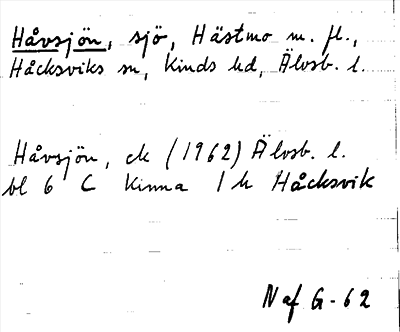 Håvsjön, sjö, Hästmo m. fl.,
Håcksviks sn, Kinds hd, Älvsb. l.
Håvsjön, ek (1962) Älvsb. l.
bl 6 C Kinna 1 h Håcksvik
Naf G-62